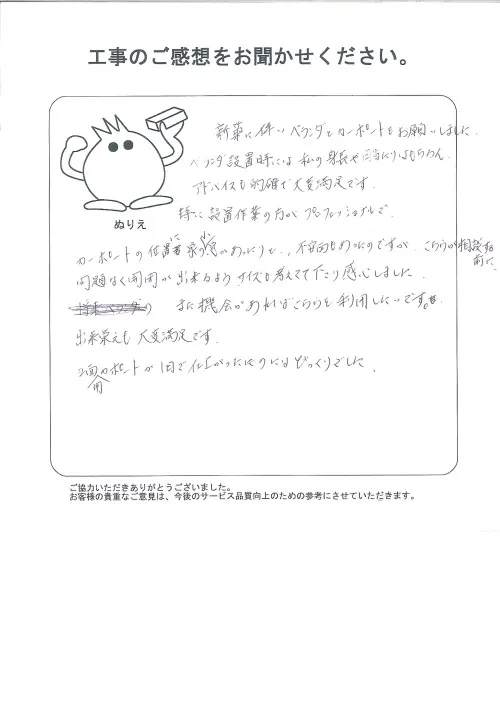 工事のご感想をお聞かせください。
新築に伴いベランダとカーポートをお願いしました。
ベランダ設置時には私の身長や
もちろん、
アドバイスも的確で大変満足です。
特に設置作業の方がプロフェッショナルで、
ぬりえ
カーポートの位置に
不安もあったのですが、こちらが相談する前に、
問題なく開閉が出来るようサイズも考えて下さり感心しました。
また機会があればこちらを利用したいです。
出来栄えも大変満足です。
2面用カーポートが1日で仕上がったのにはびっくりでした。
ご協力いただきありがとうございました。
お客様の貴重なご意見は、今後のサービス品質向上のための参考にさせていただきます。